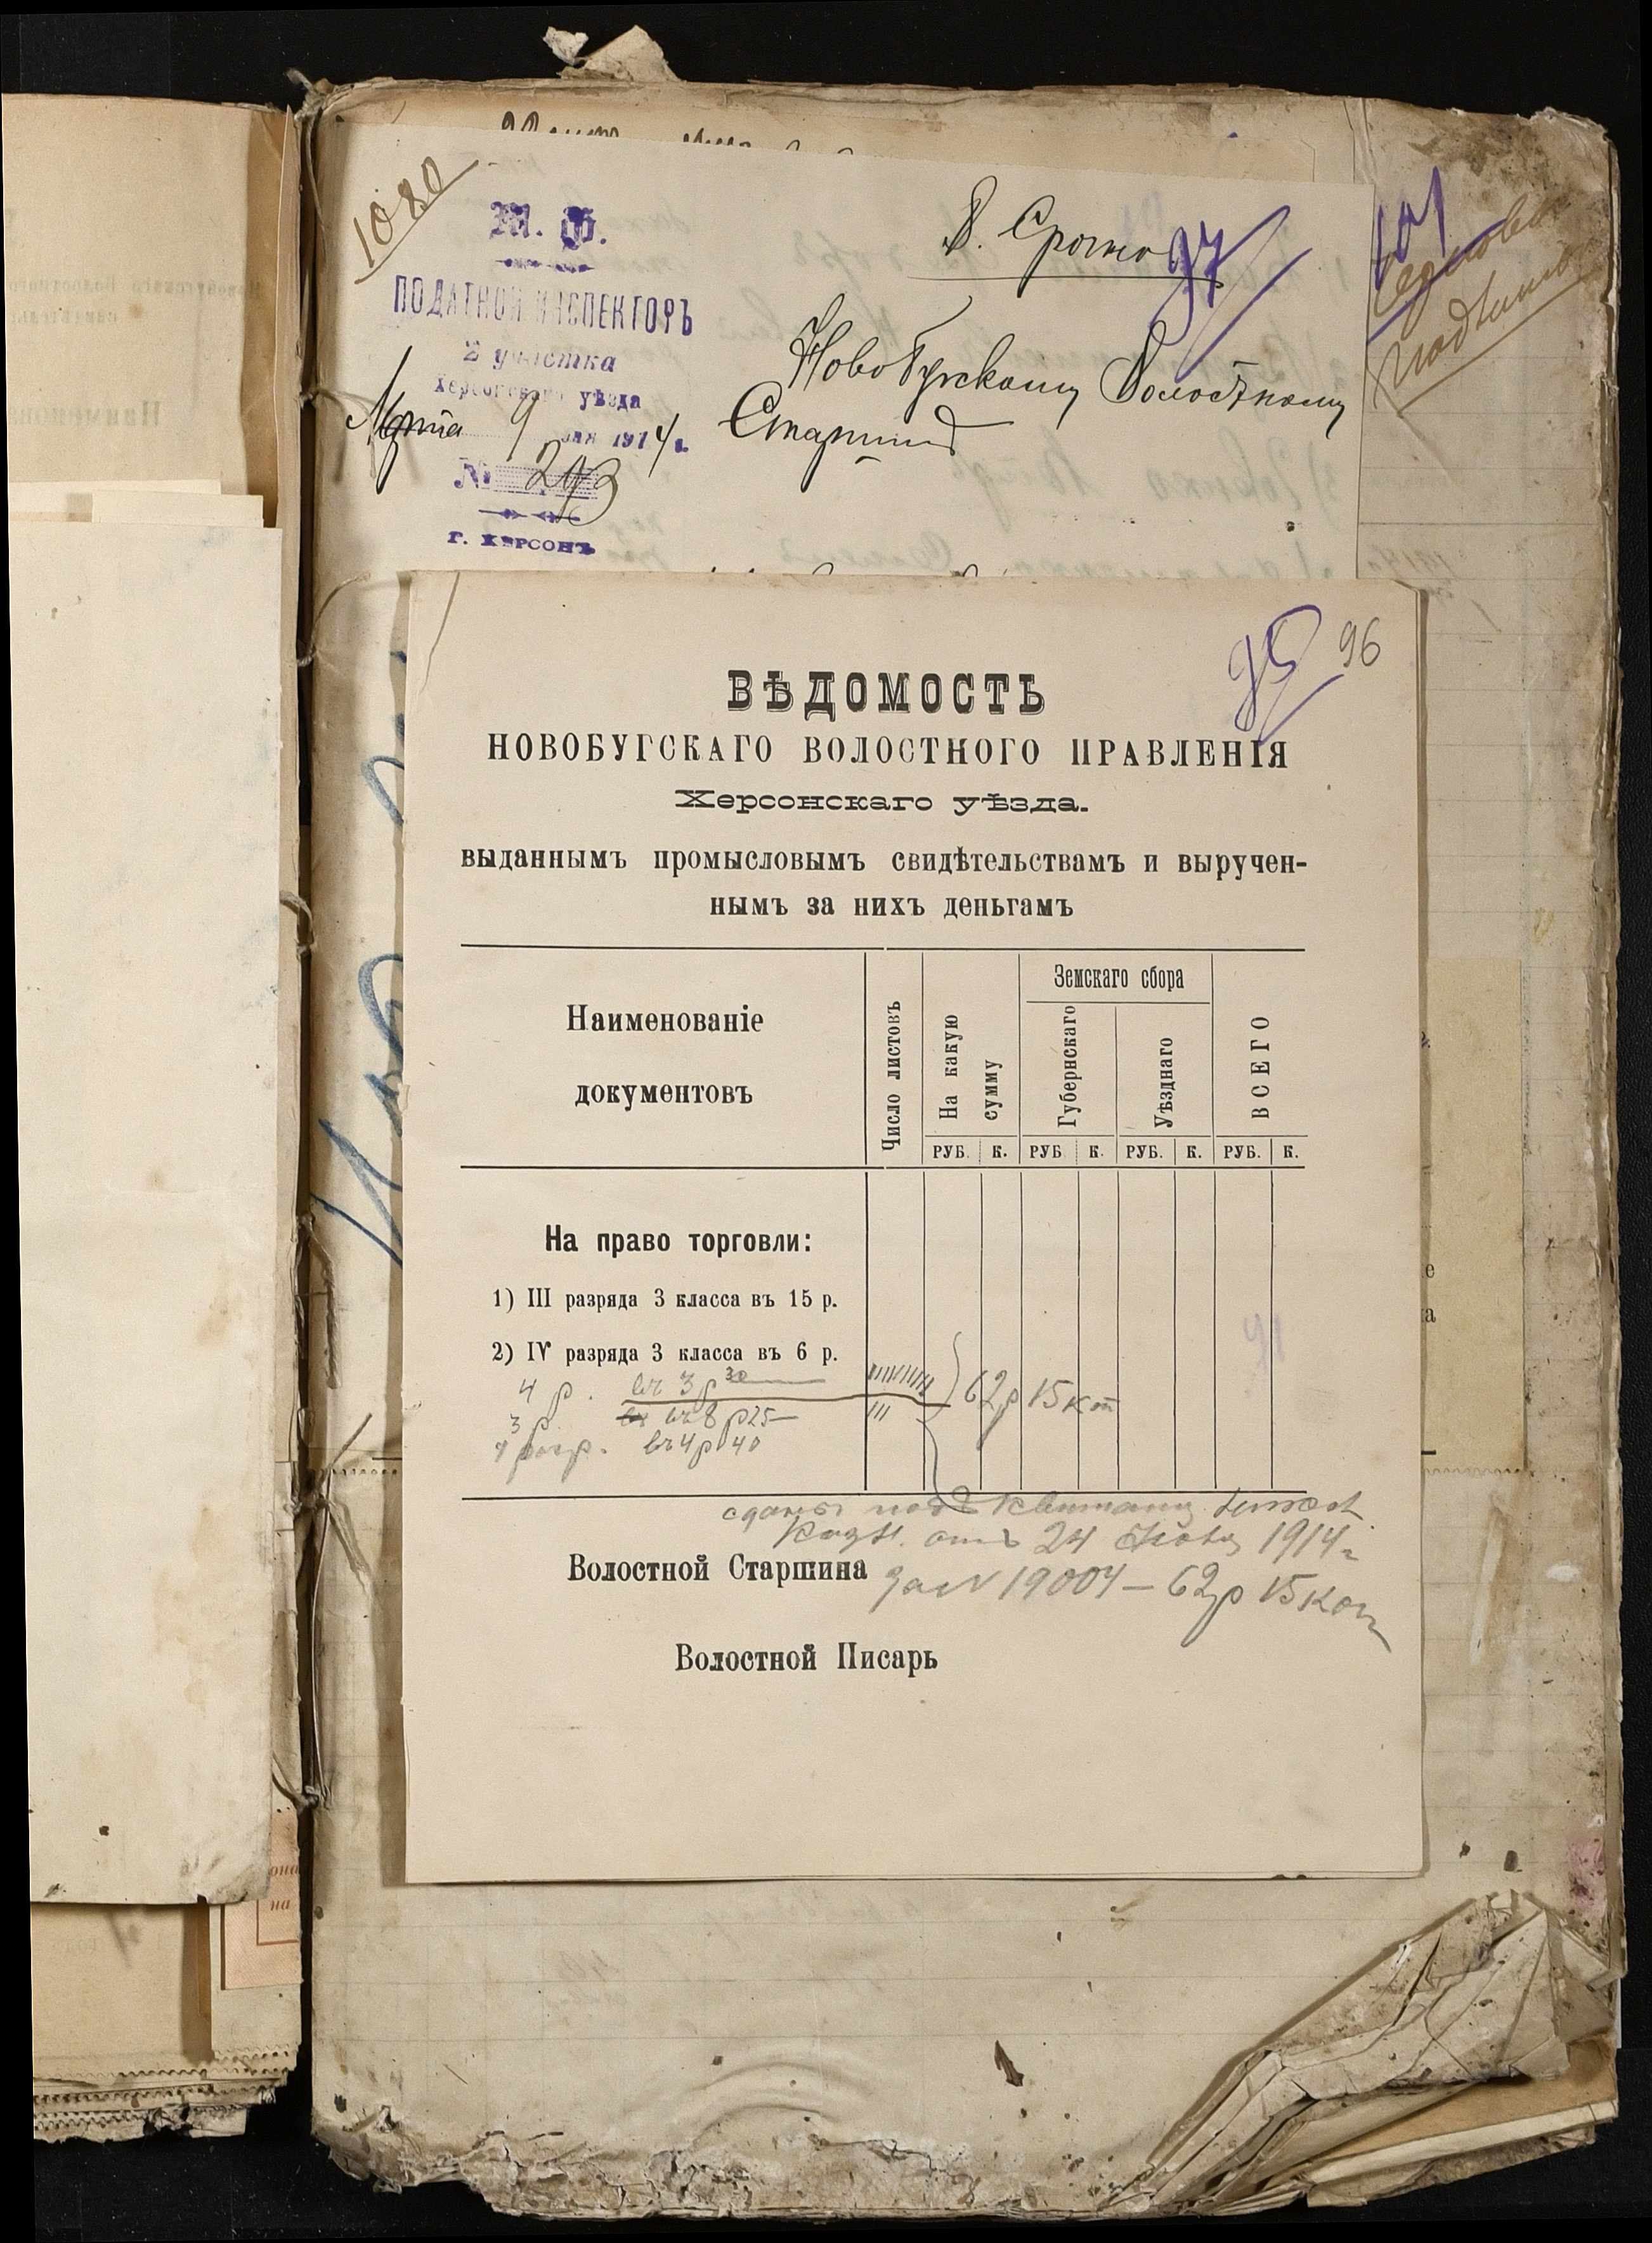 1080
М. Ф.
ПОДАТНОЙ ИНСПЕКТОРЪ
2 участка
Херсонскаго уѣзда
Марта 9 дня 1914 г.
№ 293
г. ХЕРСОНЪ
В. Срочно
97
Новобугскому Волостному
Старшинѣ
101
95 96
ВѢДОМОСТЬ
НОВОБУГСКАГО ВОЛОСТНОГО ПРАВЛЕНІЯ
Херсонскаго уѣзда.
выданнымъ промысловымъ свидѣтельствамъ и выручен-
нымъ за нихъ деньгамъ
Наименованіе
документовъ
Число листовъ
На какую
сумму
Земскаго сбора
Губернскаго
Уѣзднаго
ВСЕГО
РУБ. К. РУБ К. РУБ. К. РУБ. К.
На право торговли:
1) III разряда 3 класса въ 15 р.
2) IV разряда 3 класса въ 6 р.
4 р. въ 3 р 30
62р 15 коп
3 р. въ 8 р 25
4 разр. въ 4 р 40
сданы подъ квитанц
Казн. отъ 24 1914 г
Волостной Старшина
за № 19004 — 62р 15 коп
Волостной Писарь